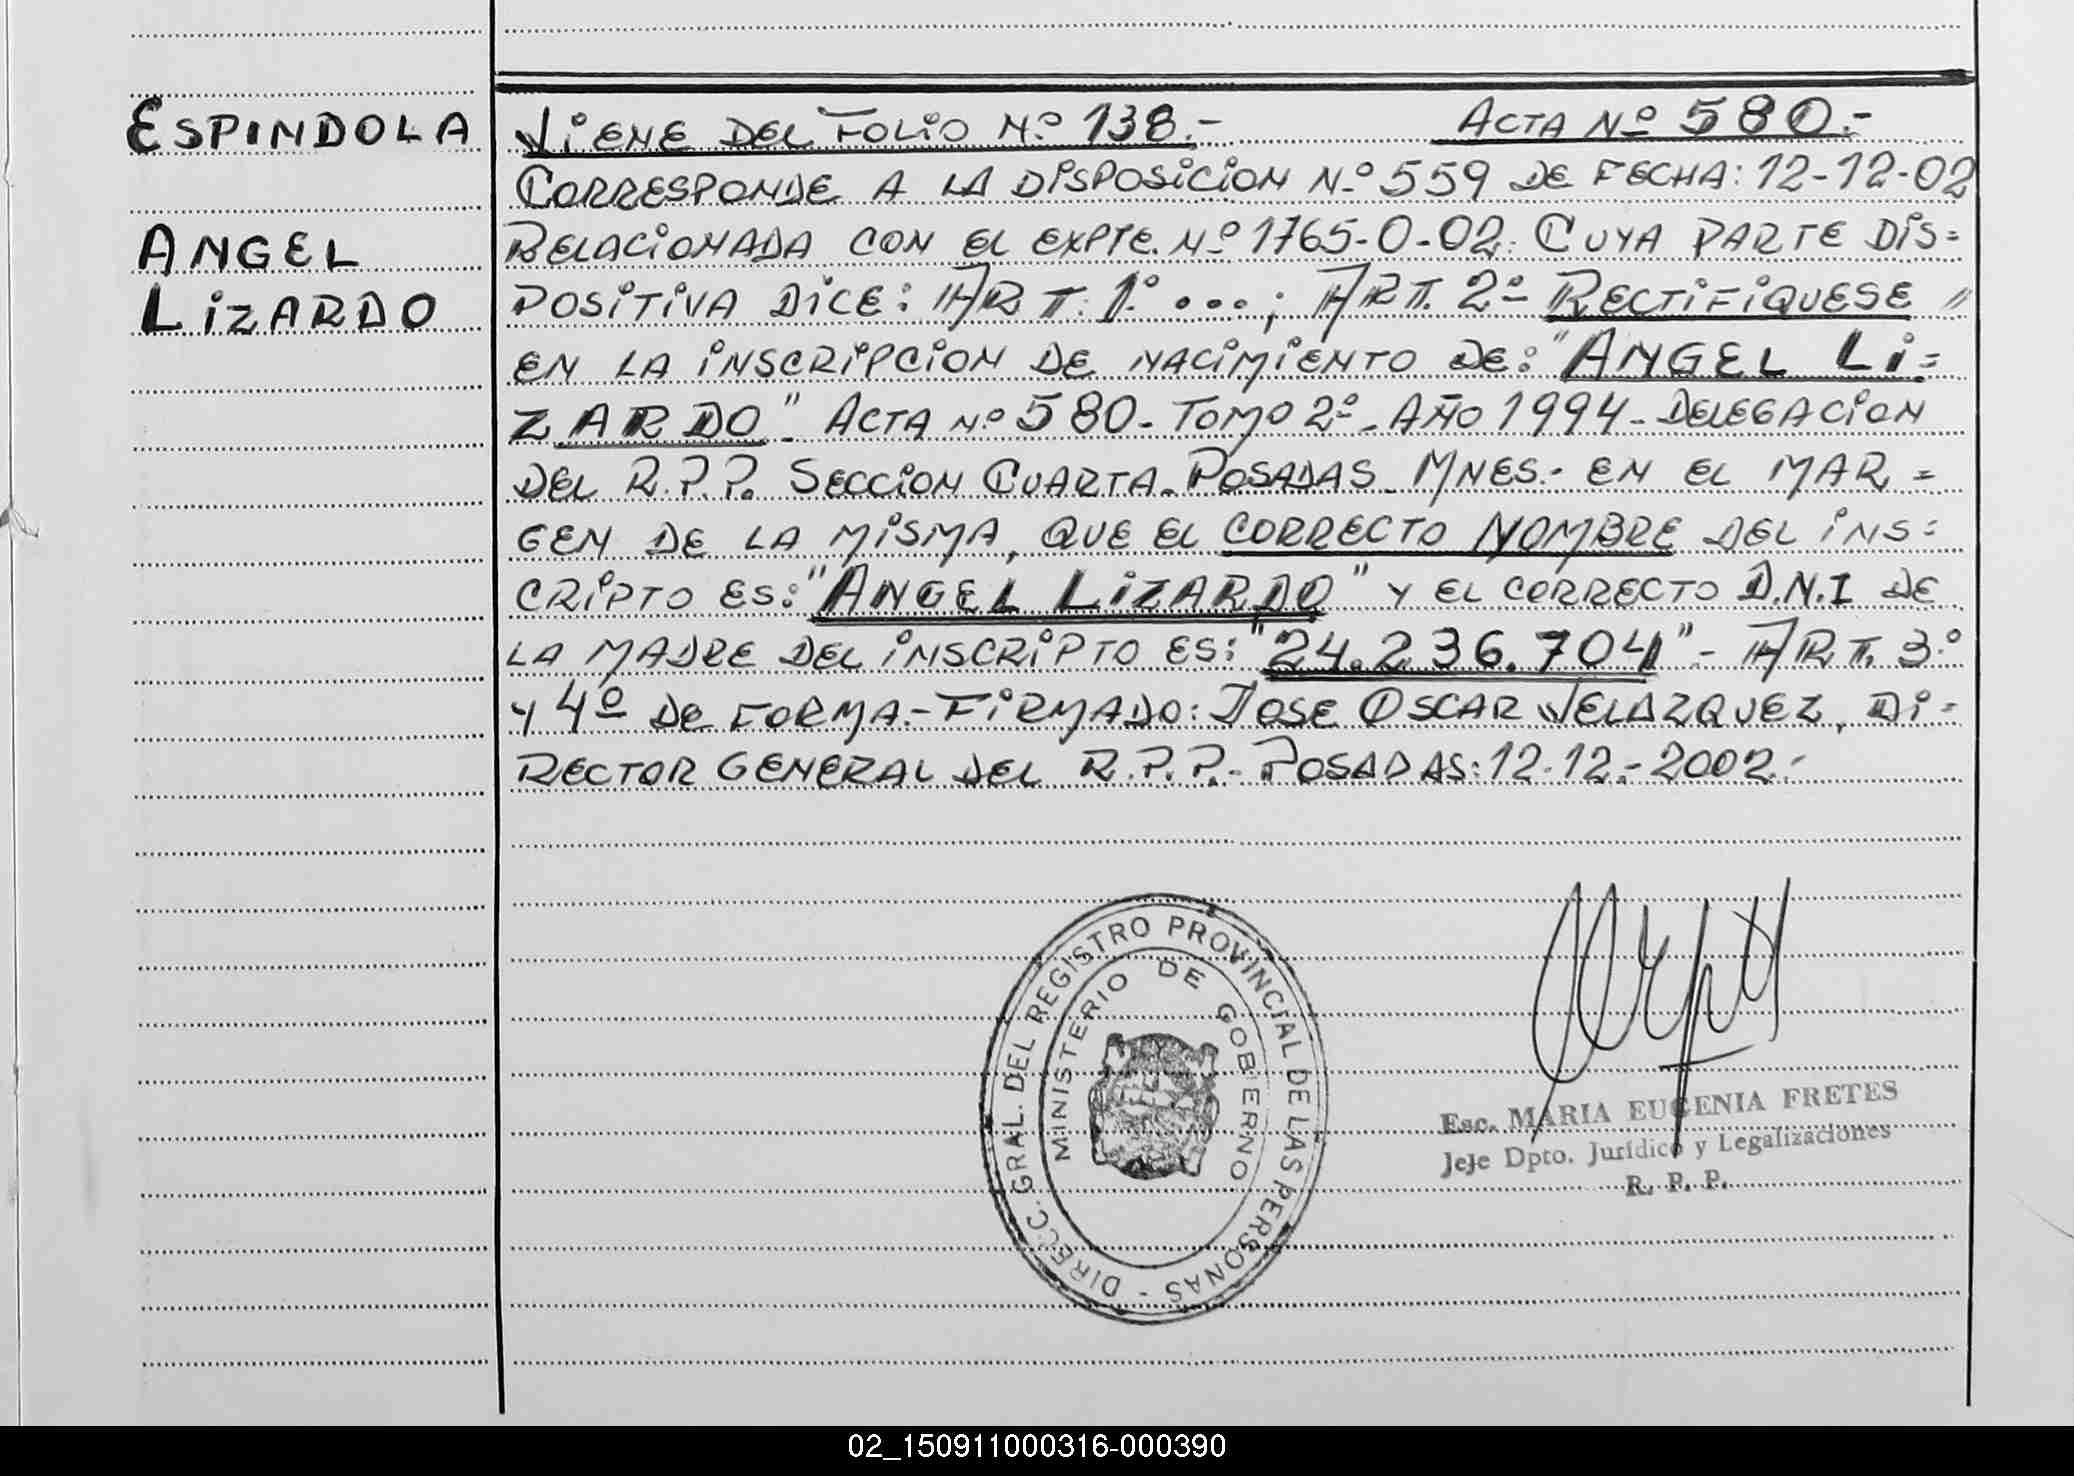 ESPINDOLA
ANGEL
LiZARDO
ViENE DEL FOLiO Nº 138.- ACTA Nº 580.-
CORRESPONDE A LA DiSPOSiCiON N.º 559 DE FECHA: 12-12-02
RELACiONADA CON EL EXPTE. Nº 1765-O-02. CUYA PARTE DiS=
POSiTiVA DiCE: ART: 1º ...; ART. 2º RECTiFiQUESE "
EN LA iNSCRiPCiON DE NACiMiENTO DE: "ANGEL Li=
ZARDO". ACTA Nº 580- TOMO 2º- AÑO 1994- DELEGACiON
DEL R.P.P. SECCiON CUARTA- POSADAS- MNES.- EN EL MAR=
GEN DE LA MiSMA, QUE EL CORRECTO NOMBRE DEL iNS=
CRiPTO ES: "ANGEL LiZARDO" Y EL CORRECTO D.N.I DE
LA MADRE DEL iNSCRiPTO ES: "24.236.704"- ART. 3º
Y 4º DE FORMA.- FiRMADO: JOSE OSCAR VELAZQUEZ, Di=
RECTOR GENERAL DEL R.P.P.- POSADAS: 12-12-2002.-
DIRECC. GRAL. DEL REGISTRO PROVINCIAL DE LAS PERSONAS -
MINISTERIO DE GOBIERNO
Esc. MARIA EUGENIA FRETES
Jefe Dpto. Jurídico y Legalizaciones
R. P. P.
02_150911000316-000390